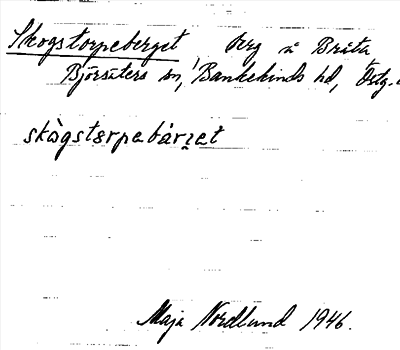 Skogstorpeberget, berg i Bråta
Björsäters sn, Bankekinds hd, Östg.
skògstɷrpabár̯jet
Maja Nordlund 1946.